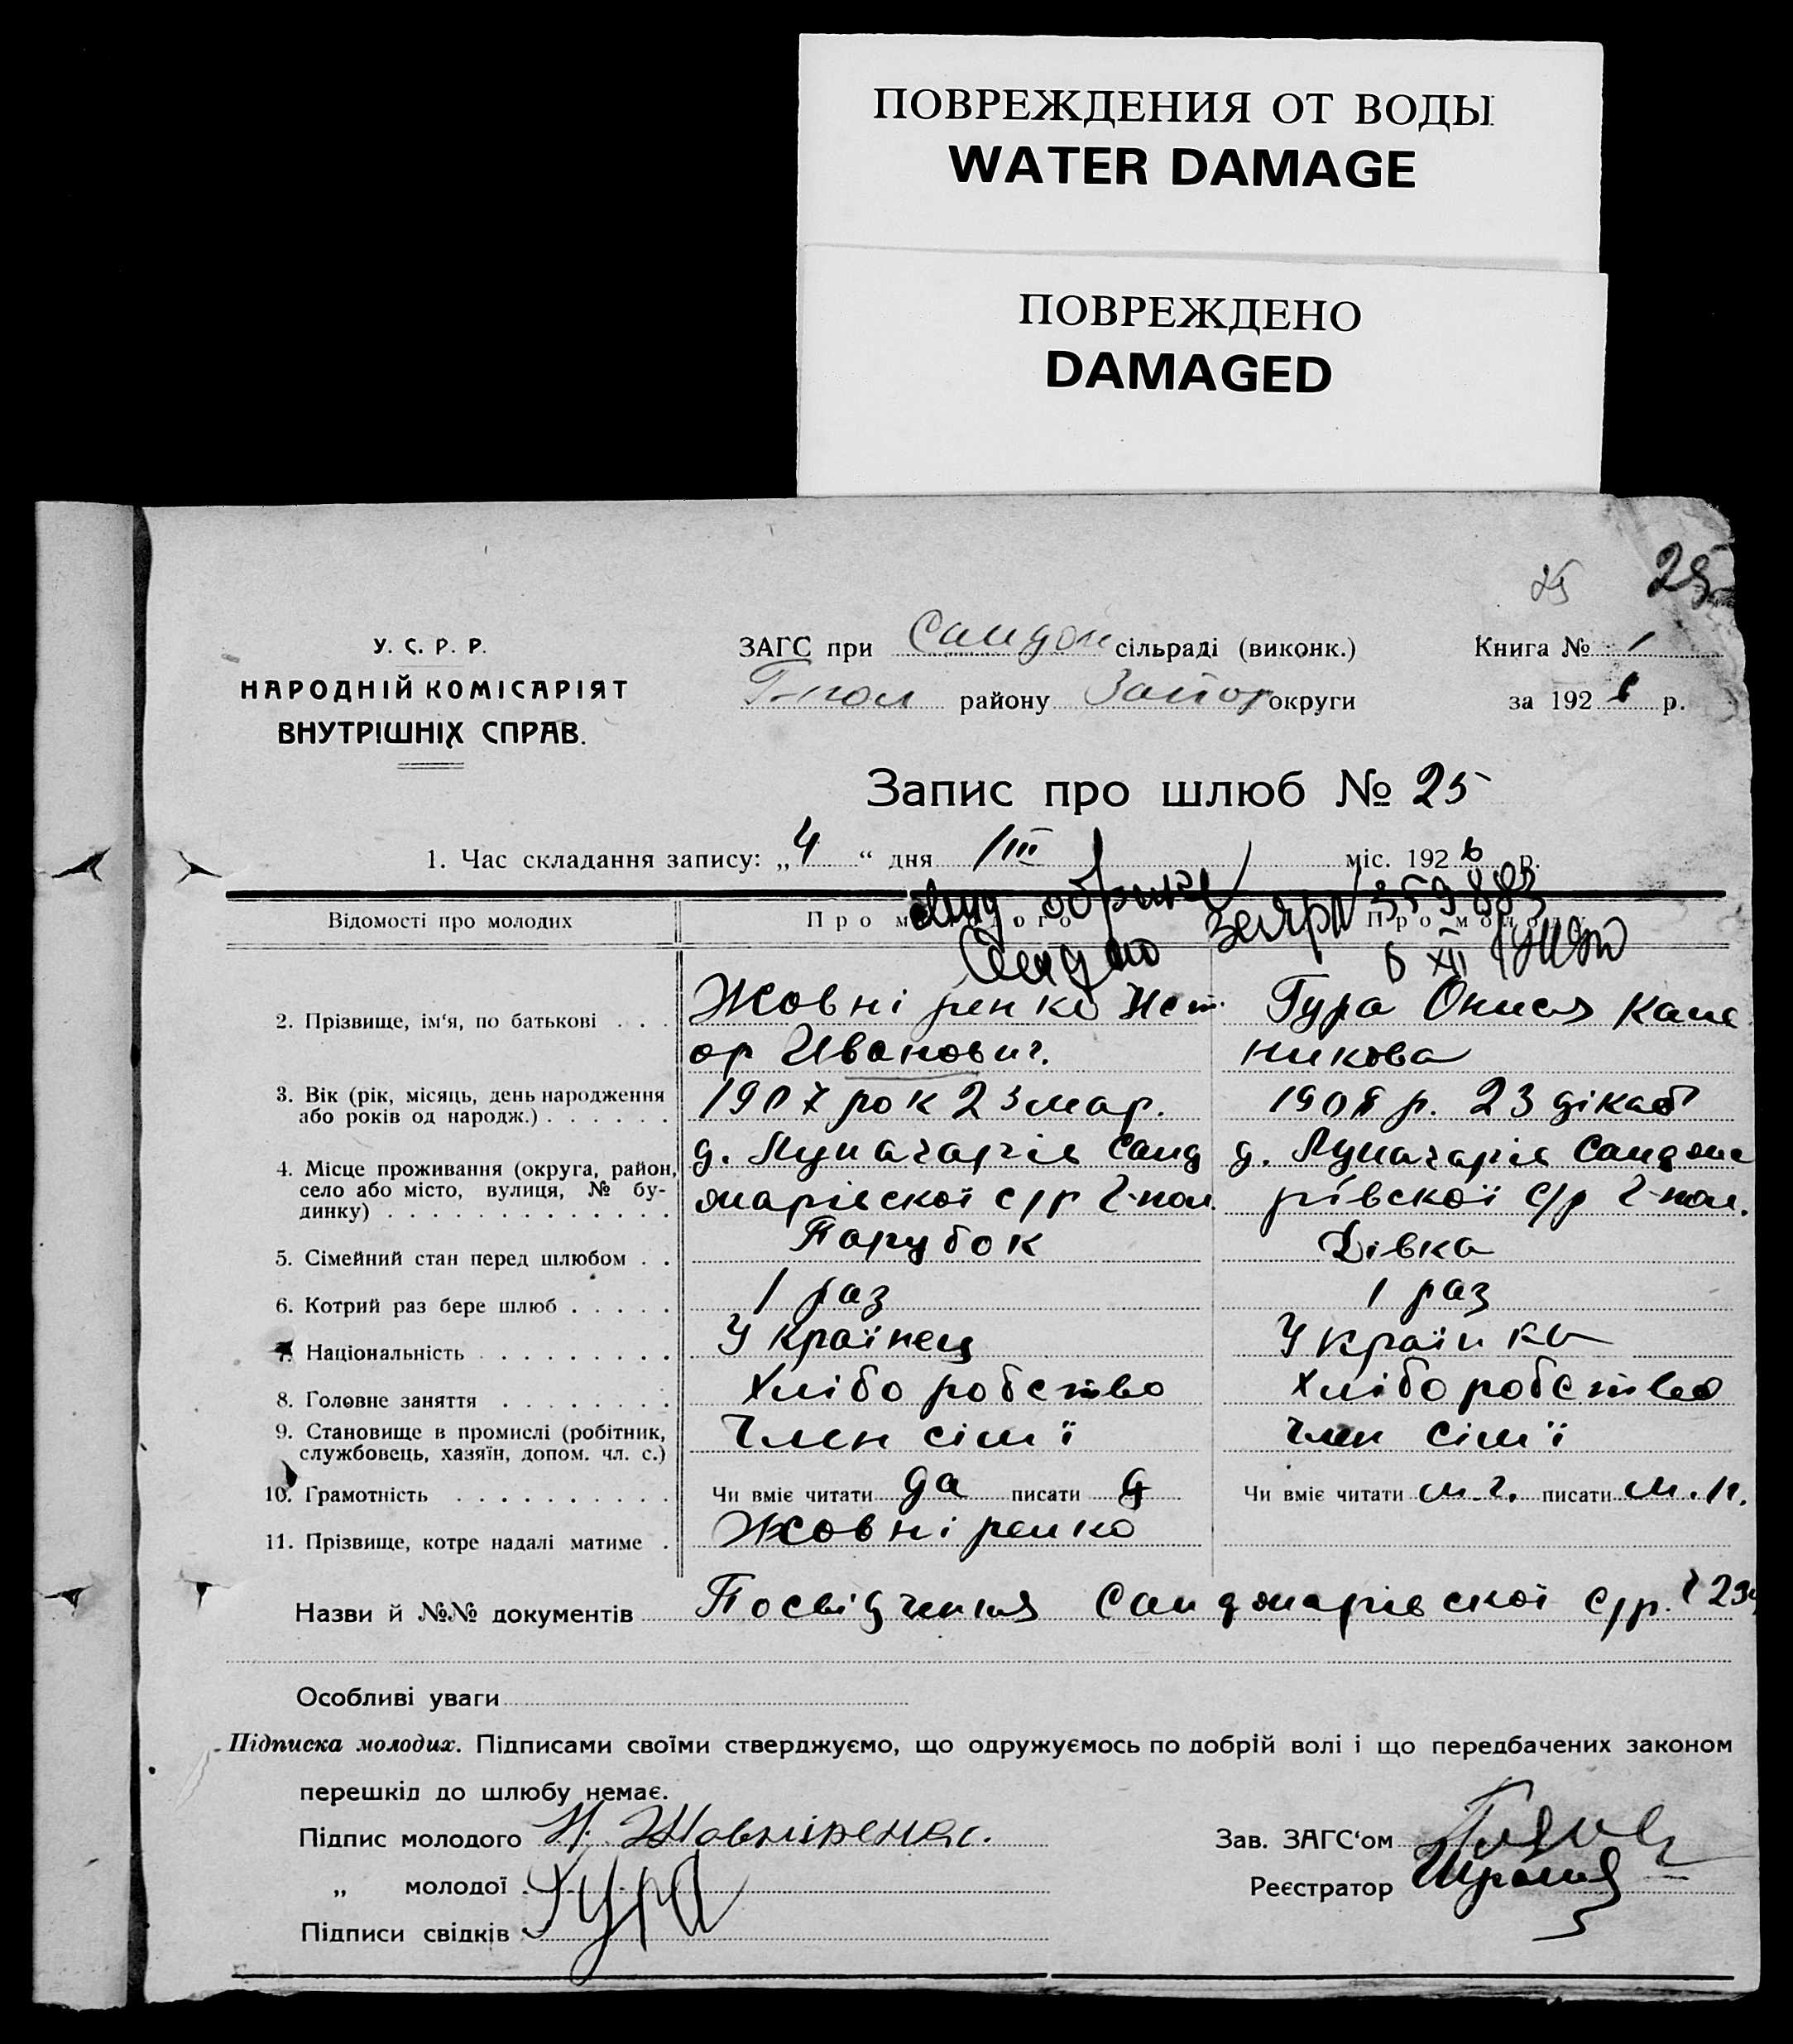 ПОВРЕЖДЕНИЯ ОТ ВОДЫ
WATER DAMAGE
ПОВРЕЖДЕНО
DAMAGED
25 25
У. С. Р. Р.
НАРОДНІЙ КОМІСАРІЯТ
ВНУТРІШНІХ СПРАВ.
ЗАГС при Сандом сільраді (виконк.) Книга № 1
Г-пол району Запор округи за 1926 р.
Запис про шлюб № 25
1. Час складання запису: „4“ дня III міс. 1926 р.
Відомості про молодих Про молодого Про молоду
359883
6 XII
2. Прізвище, ім‘я, по батькові . . . Жовніренко Нест Гура Онися Кале
ор Иванович. никова
3. Вік (рік, місяць, день народження 1907 рок 23 мар. 1908 р. 23 дікаб
або років од народж.) . . . . . .
4. Місце проживання (округа, район, д. Луначарів Санд д. Луначарів Сандома
село або місто, вулиця, № бу- омарівскої с/р Г-пол. рівскої с/р Г-пол.
динку) . . . . . . . . . . . . .
5. Сімейний стан перед шлюбом . . Парубок Дівка
6. Котрий раз бере шлюб . . . . . 1 раз 1 раз
7. Національність . . . . . . . . . Українец Українка
8. Головне заняття . . . . . . . . Хліборобство Хліборобство
9. Становище в промислі (робітник, Член сім'ї Член сім'ї
службовець, хазяїн, допом. чл. с.)
10. Грамотність . . . . . . . . . . Чи вміє читати да писати д Чи вміє читати м. г. писати м. п.
11. Прізвище, котре надалі матиме . Жовніренко
Назви й №№ документів Посвідчення Сандомарівскої с/р.
Особливі уваги
Підписка молодих. Підписами своїми стверджуємо, що одружуємось по добрій волі і що передбачених законом
перешкід до шлюбу немає.
Підпис молодого Н. Жовніренко. Зав. ЗАГС‘ом
„ молодої Гура Реєстратор
Підписи свідків